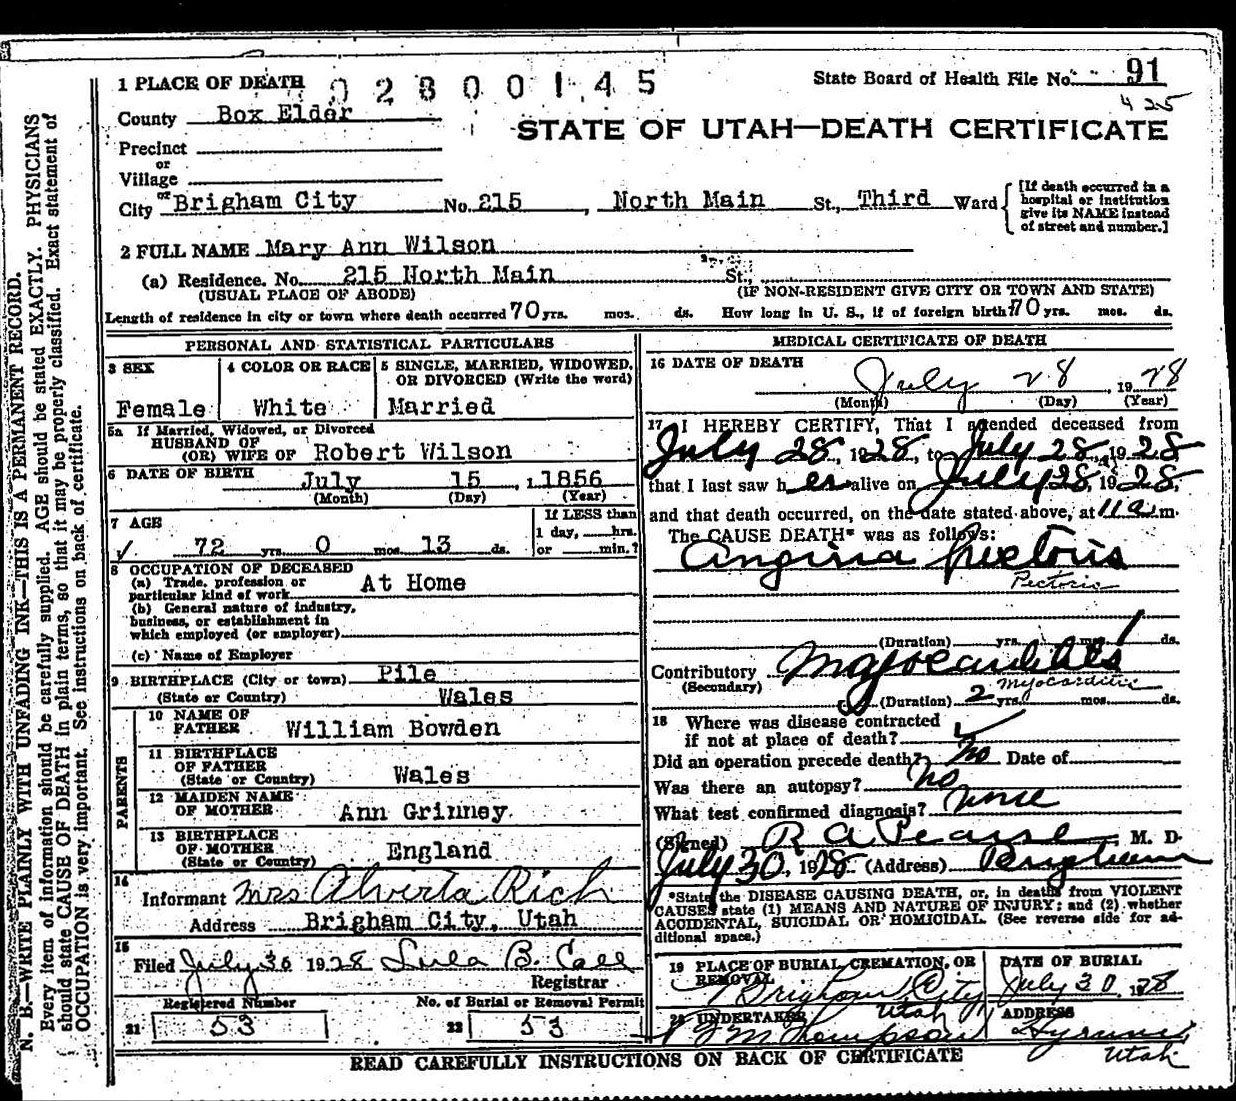 N. B.—WRITE PLAINLY WITH UNFADING INK—THIS IS A PERMANENT RECORD.
Every item of information should be carefully supplied. AGE should be stated EXACTLY. PHYSICIANS
should state CAUSE OF DEATH in plain terms, so that it may be properly classified. Exact statement of
OCCUPATION is very important. See instructions on back of certificate.
1 PLACE OF DEATH 02800145
State Board of Health File No. 91
425
County Box Elder
STATE OF UTAH—DEATH CERTIFICATE
Precinct
or
Village
or
City Brigham City No. 215, North Main St., Third Ward
[If death occurred in a
hospital or institution
give its NAME instead
of street and number.]
2 FULL NAME Mary Ann Wilson
(a) Residence. No. 215 North Main St.,
(USUAL PLACE OF ABODE) (IF NON-RESIDENT GIVE CITY OR TOWN AND STATE)
Length of residence in city or town where death occurred 70 yrs. mos. ds. How long in U. S., if of foreign birth? 70 yrs. mos. ds.
PERSONAL AND STATISTICAL PARTICULARS
3 SEX
Female
4 COLOR OR RACE
White
5 SINGLE, MARRIED, WIDOWED,
OR DIVORCED (Write the word)
Married
5a If Married, Widowed, or Divorced
HUSBAND OF
(OR) WIFE OF Robert Wilson
6 DATE OF BIRTH July 15, 1856
(Month) (Day) (Year)
7 AGE
72 yrs. 0 mos. 13 ds.
If LESS than
1 day, hrs.
or min.?
8 OCCUPATION OF DECEASED
(a) Trade, profession or
particular kind of work At Home
(b) General nature of industry,
business, or establishment in
which employed (or employer)
(c) Name of Employer
9 BIRTHPLACE (City or town) Pile
(State or Country) Wales
PARENTS
10 NAME OF
FATHER William Bowden
11 BIRTHPLACE
OF FATHER
(State or Country) Wales
12 MAIDEN NAME
OF MOTHER Ann Grinney
13 BIRTHPLACE
OF MOTHER
(State or Country) England
14
Informant Mrs Alvirta Rich
Address Brigham City, Utah
15
Filed July 30 1928 Lula B. Call
Registrar
Registered Number
21 53
No. of Burial or Removal Permit
22 53
MEDICAL CERTIFICATE OF DEATH
16 DATE OF DEATH
July 28, 1928
(Month) (Day) (Year)
17 I HEREBY CERTIFY, That I attended deceased from
July 28, 1928, to July 28, 1928
that I last saw her alive on July 28, 1928,
and that death occurred, on the date stated above, at 11 a m.
The CAUSE DEATH* was as follows:
Angina Pectoris
Pectoris
(Duration) yrs. mos. 1 ds.
Contributory Myocarditis
(Secondary) Myocarditis
(Duration) 2 yrs. mos. ds.
18 Where was disease contracted
if not at place of death?
Did an operation precede death? no Date of
Was there an autopsy? no
What test confirmed diagnosis? none
(Signed) R A Pearse M. D
July 30, 1928 (Address) Brigham
*State the DISEASE CAUSING DEATH, or, in deaths from VIOLENT
CAUSES state (1) MEANS AND NATURE OF INJURY; and (2) whether
ACCIDENTAL, SUICIDAL OR HOMICIDAL. (See reverse side for ad-
ditional space.)
19 PLACE OF BURIAL, CREMATION, OR
REMOVAL
Brigham City
Utah
DATE OF BURIAL
July 30 1928
20 UNDERTAKER
M Thompson
ADDRESS
Hyrum,
Utah
READ CAREFULLY INSTRUCTIONS ON BACK OF CERTIFICATE